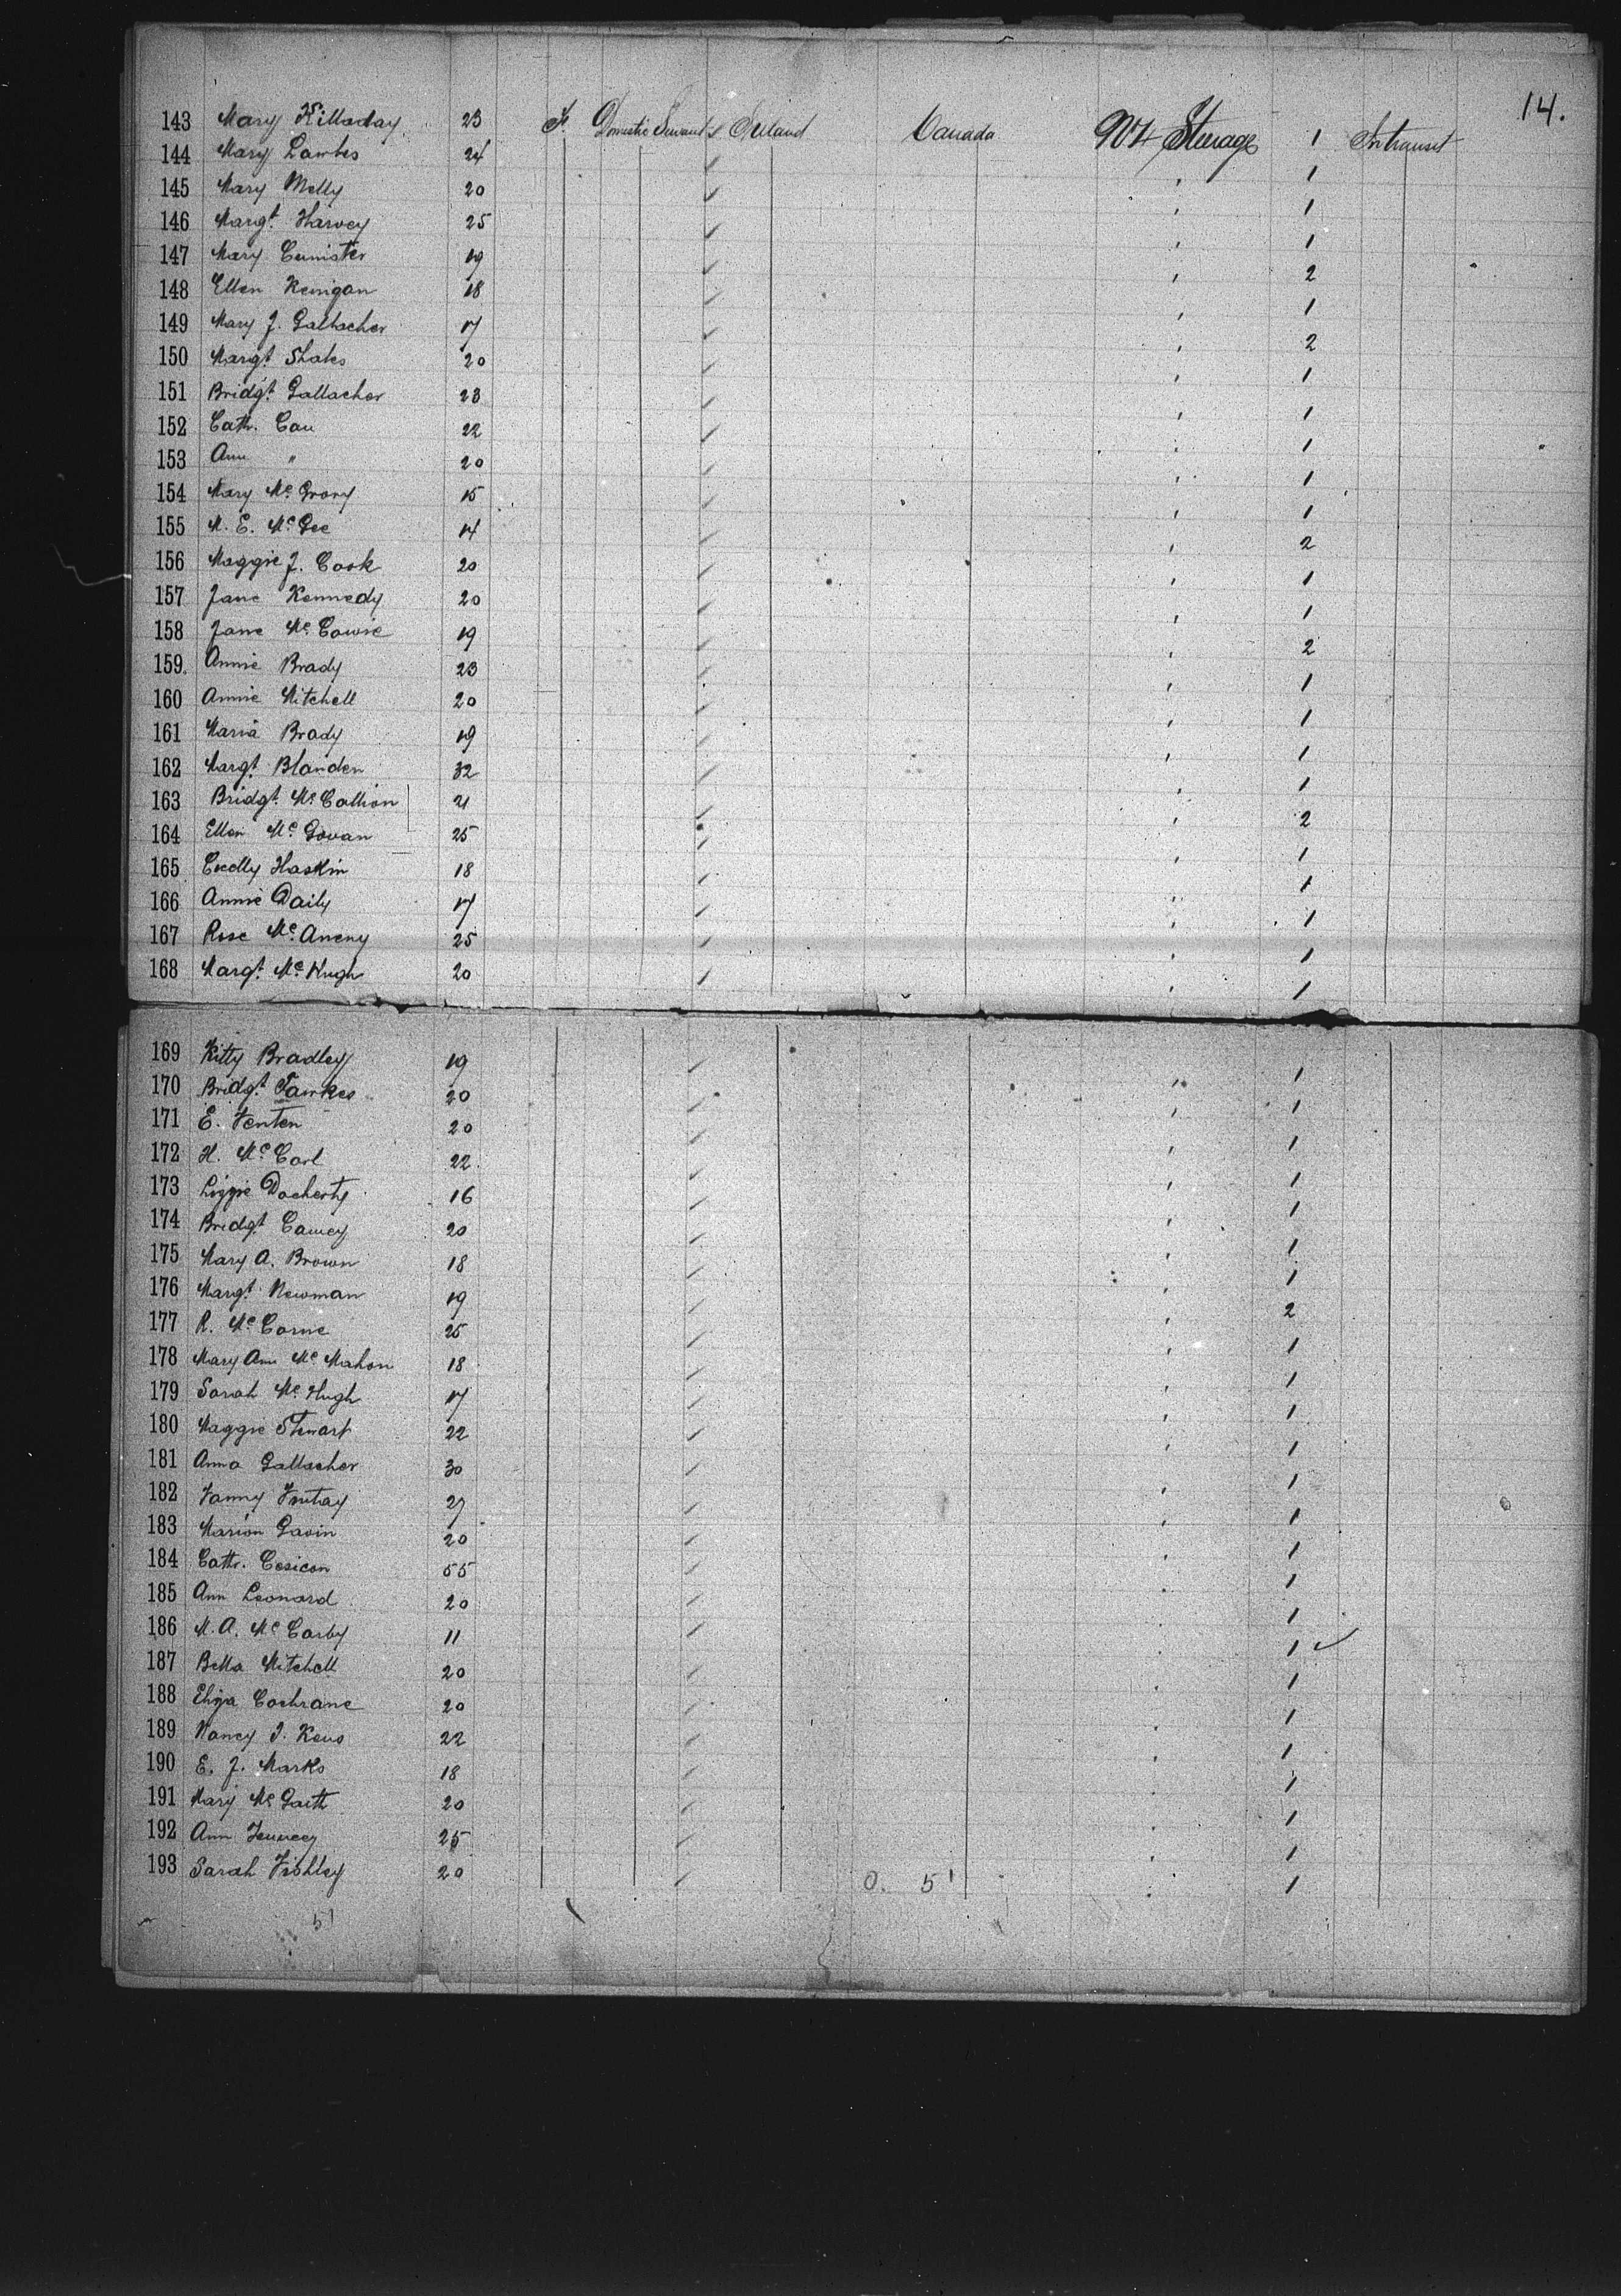 14.
143 Mary Killaday 23 F. Domestic Servants Ireland Canada Steerage 1 Intransit
144 Mary Lawbes 24 1
145 Mary Melly 20 1
146 Margt. Harvey 25 1
147 Mary Cunister 19 2
148 Ellen Kerrigan 18 1
149 Mary J. Gallacher 17 2
150 Margt. Shales 20 1
151 Bridgt. Gallacher 23 1
152 Cath. 22 1
153 Ann " 20 1
154 Mary Mc Grory 15 1
155 M. E. Mc Gee 14 2
156 Maggie J. Cook 20 1
157 Jane Kennedy 20 1
158 Jane Mc Cowie 19 2
159 Annie Brady 23 1
160 Annie Mitchell 20 1
161 Maria Brady 19 1
162 Margt. Blanden 32 1
163 Bridgt. Mc Callion 21 2
164 Ellen Mc Gowan 25 1
165 Haskin 18 1
166 Annie Daily 17 1
167 Rose Mc Aneny 25 1
168 Margt. Mc Hugh 20 1
169 Kitty Bradley 19 1
170 Bridgt. Fawkes 20 1
171 E. Fenten 20 1
172 H. Mc Carl 22 1
173 Lizzie Docherty 16 1
174 Bridgt. 20 1
175 Mary A. Brown 18 1
176 Margt. Newman 19 2
177 R. Mc Corne 25 1
178 Mary Ann Mc Mahon 18 1
179 Sarah Mc Hugh 17 1
180 Maggie Stewart 22 1
181 Anna Gallacher 30 1
182 Fanny 27 1
183 Marion Gavin 20 1
184 Cath. Cesicon 55 1
185 Ann Leonard 20 1
186 M. A. Mc Carby 11 1
187 Bella Mitchell 20 1
188 Eliza Cochrane 20 1
189 Nancy J. 22 1
190 E. J. Marks 18 1
191 Mary Mc Garth 20 1
192 Ann 25 1
193 Sarah Fishley 20 0. 51 1
51